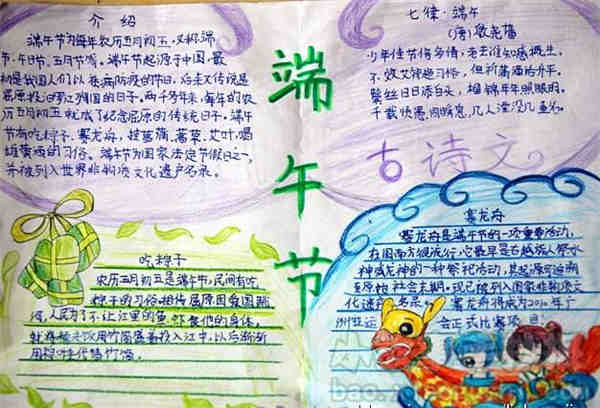 介绍
端午节为每年农历五月初五,又称端
节、午日节、五月节等。端午节起源于中国,最
初是我国人们以祛病防疫的节日,后来又传说是
屈原投汨罗江殉国的日子。两千多年来,每年的农
历五月初五就成了纪念屈原的传统日子。端午
节有吃粽子,赛龙舟,挂菖蒲、蒿草、艾叶,喝
雄黄酒的习俗。端午节为国家法定节假日之一,
并被列入世界非物质文化遗产名录。
七律·端午
(唐)殷尧藩
少年佳节倍多情,老去谁知感慨生。
不效艾符趋习俗,但祈蒲酒话升平。
鬓丝日日添白头,榴锦年年照眼明。
千载贤愚同瞬息,几人湮没几垂名。
端午节
古诗文
吃粽子
农历五月初五是端午节,民间有吃
粽子的习俗。相传屈原因爱国跳
河,人民为了不让江里的鱼、虾食他的身体,
就把糯米饭用竹筒盛着投入江中,以后渐渐
用粽叶代替竹筒。
赛龙舟
赛龙舟是端午节的一项重要活动,
在国南方很流行,它最早是古越族人祭水
神或龙神的一种祭祀活动,其起源可追溯
至原始社会末期。现已被列入国家非物质文
化遗产名录。赛龙舟将成为2010年广
州亚运会正式比赛项目。